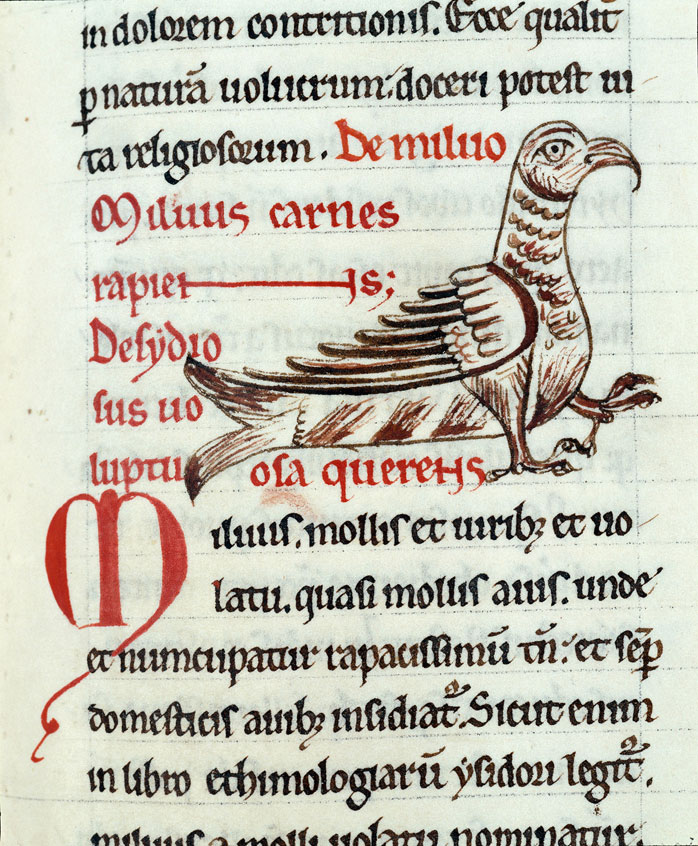 in dolorem contritionis. Ecce qualit̄
ꝑ naturā uolucrum doceri potest ui
ta religiosorum. De miluo
Miluus carnes
rapiet is;
Desydio
sus uo
luptu osa queretis
Miluus. mollis et uiribꝫ et uo
latu. quasi mollis auis. unde
et nuncupatur rapacissimū tn̄. et semꝑ
domesticis auibꝫ insidiat᷑. Sicut enim
in libro ethimologiarū ysidori legit᷑.
miluus a molli uolatu nominatur.